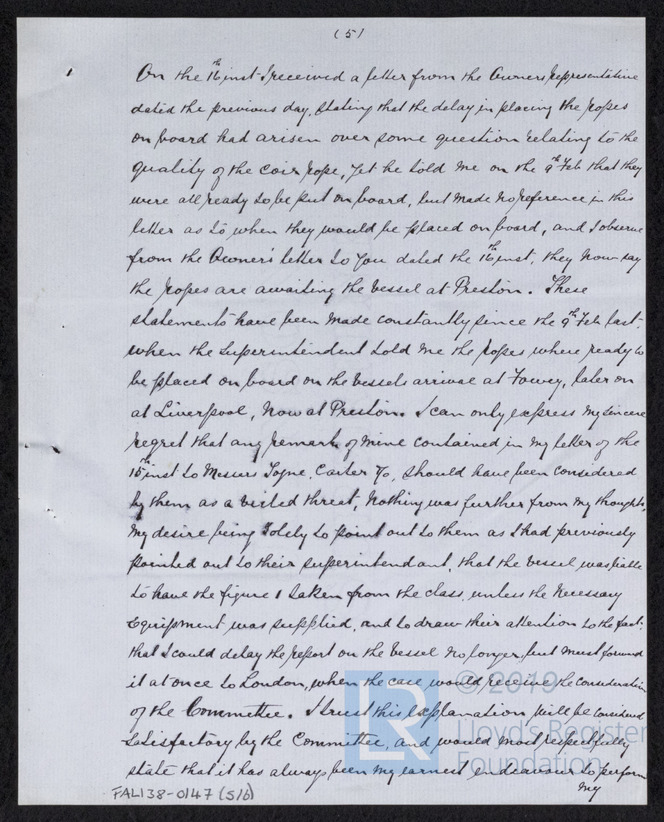 (5)
On the 16th inst I received a letter from the Owners representative
dated the previous day, stating that the delay in placing the ropes
on board had arisen over some question relating to the
quality of the coir rope, yet he told me on the 9th Feb that they
were all ready to be put on board, but made no reference in this
letter as to when they would be placed on board, and I observe
from the Owner's letter to you dated the 16th inst, they now say
the ropes are awaiting the vessel at Preston. These
statements have been made constantly since the 9th Feb last.
when the Superintendent told me the ropes where ready to
be placed on board on the vessels arrival at Fowey, later on
at Liverpool, now at Preston. I can only express my sincere
regret that any remark of mine contained in my letter of the
15th inst to Messrs Toyne, Carter & Co, should have been considered
by them as a veiled threat, nothing was further from my thoughts,
my desire being solely to point out to them as I had previously
pointed out to their superintendent, that the vessel was liable
to have the figure 1 taken from the class, unless the necessary
Equipment was supplied, and to draw their attention to the fact.
that I could delay the report on the vessel no longer, but must forward
it at once to London, when the case would receive the consideration
of the Committee. I trust this explanation will be considered
satisfactory by the Committee, and would most respectfully
state that it has always been my earnest endeavour to perform
my
FAL138-0147 (5/6)
© 2019
LR
Lloyd's Register
Foundation